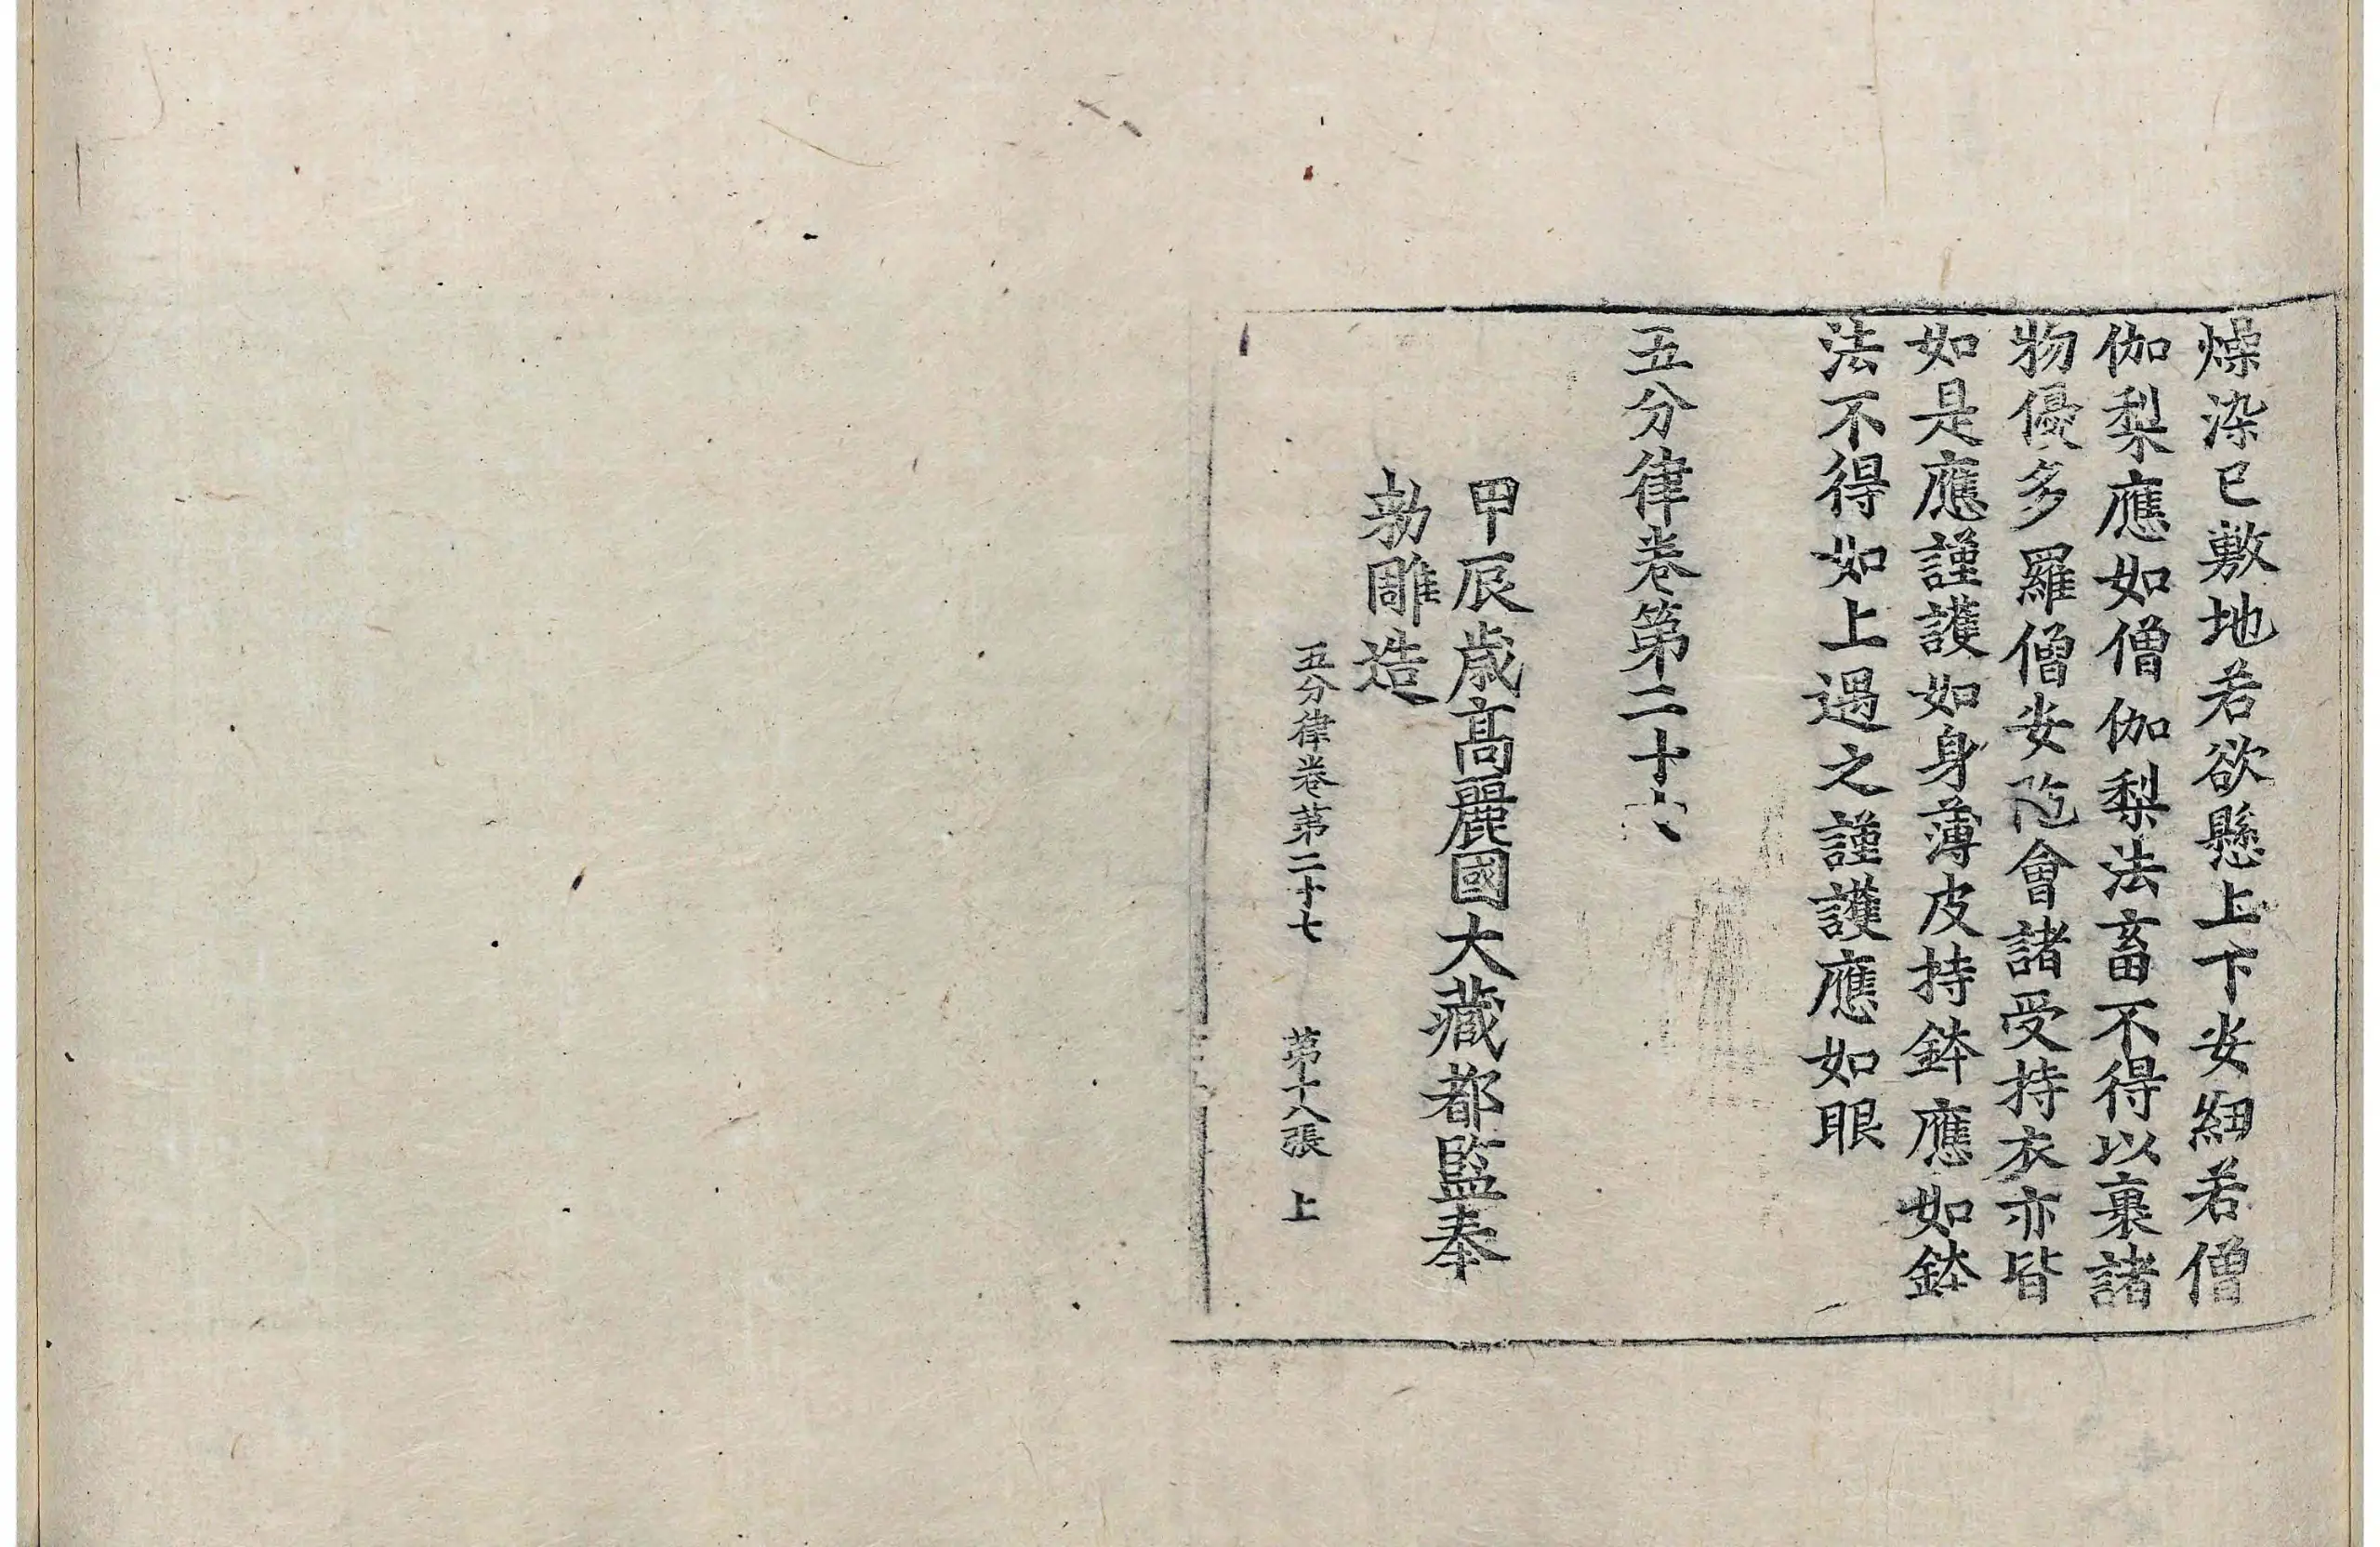 燥染已敷地若欲懸上下安紐若僧
伽梨應如僧伽梨法畜不得以裹諸
物優多羅僧安陁會諸受持衣亦皆
如是應謹護如身薄皮持鉢應如鉢
法不得如上遇之謹護應如眼
五分律卷第二十六
甲辰歳高麗國大藏都監奉
勅雕造
五分律卷第二十七 第十八張 上